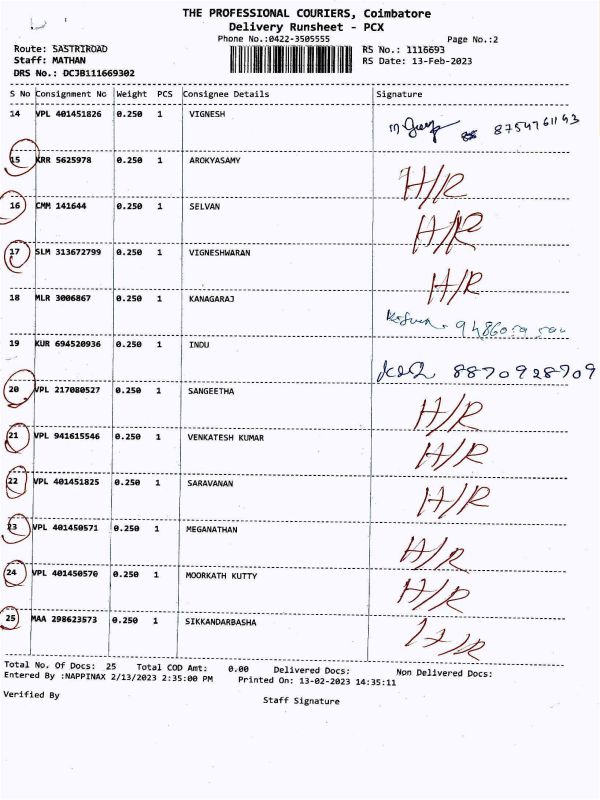 THE PROFESSIONAL COURIERS, Coimbatore
Delivery Runsheet - PCX
Phone No.:0422-3505555 Page No.:2
Route: SASTRIROAD RS No.: 1116693
Staff: MATHAN RS Date: 13-Feb-2023
DRS No.: DCJB111669302
S No Consignment No Weight PCS Consignee Details Signature
14 VPL 401451826 0.250 1 VIGNESH 8754761143
15 KRR 5625978 0.250 1 AROKYASAMY H/R
16 CMM 141644 0.250 1 SELVAN H/R
17 SLM 313672799 0.250 1 VIGNESHWARAN H/R
18 MLR 3006867 0.250 1 KANAGARAJ
19 KUR 694520936 0.250 1 INDU 8870928709
20 VPL 217080527 0.250 1 SANGEETHA H/R
21 VPL 941615546 0.250 1 VENKATESH KUMAR H/R
22 VPL 401451825 0.250 1 SARAVANAN H/R
23 VPL 401450571 0.250 1 MEGANATHAN H/R
24 VPL 401450570 0.250 1 MOORKATH KUTTY H/R
25 MAA 298623573 0.250 1 SIKKANDARBASHA H/R
Total No. Of Docs: 25 Total COD Amt: 0.00 Delivered Docs: Non Delivered Docs:
Entered By :NAPPINAX 2/13/2023 2:35:00 PM Printed On: 13-02-2023 14:35:11
Verified By Staff Signature